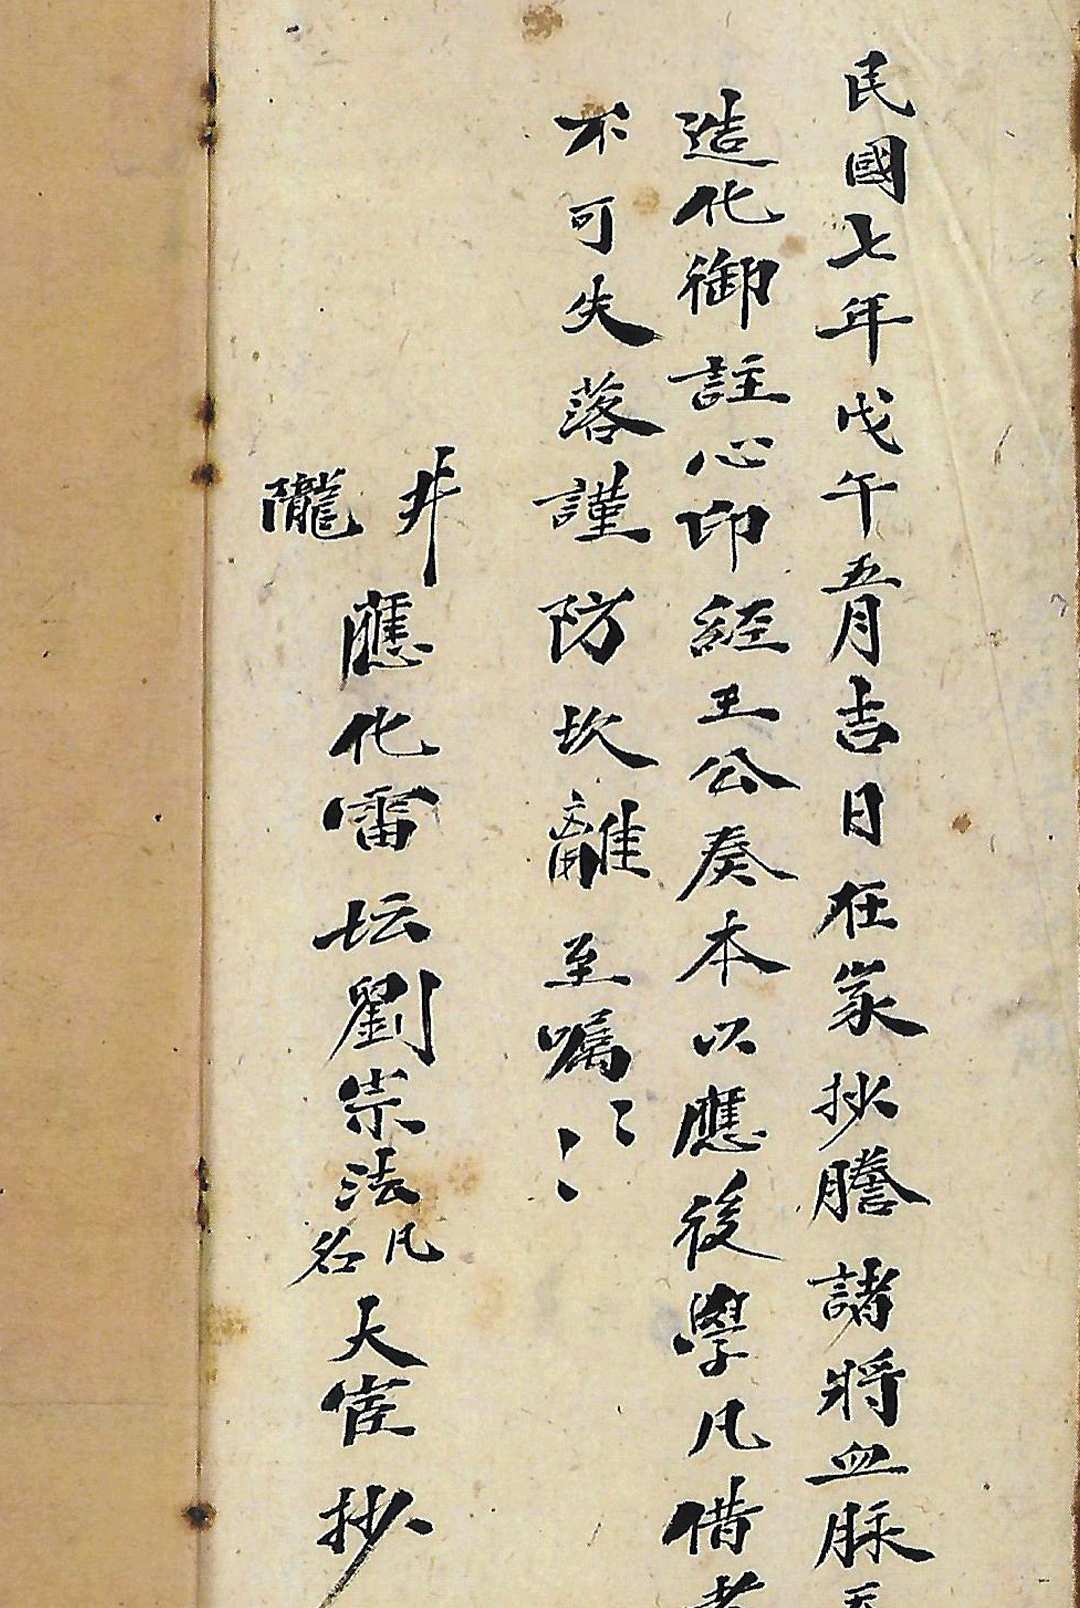 民國七年戊午五月吉日在家抄謄諸將血脉
造化御註心印經王公奏本以應後學凡借者
不可失落謹防坎離至嘱〻〻
井
隴
應化雷坛劉宗法
凡
名
大宦抄